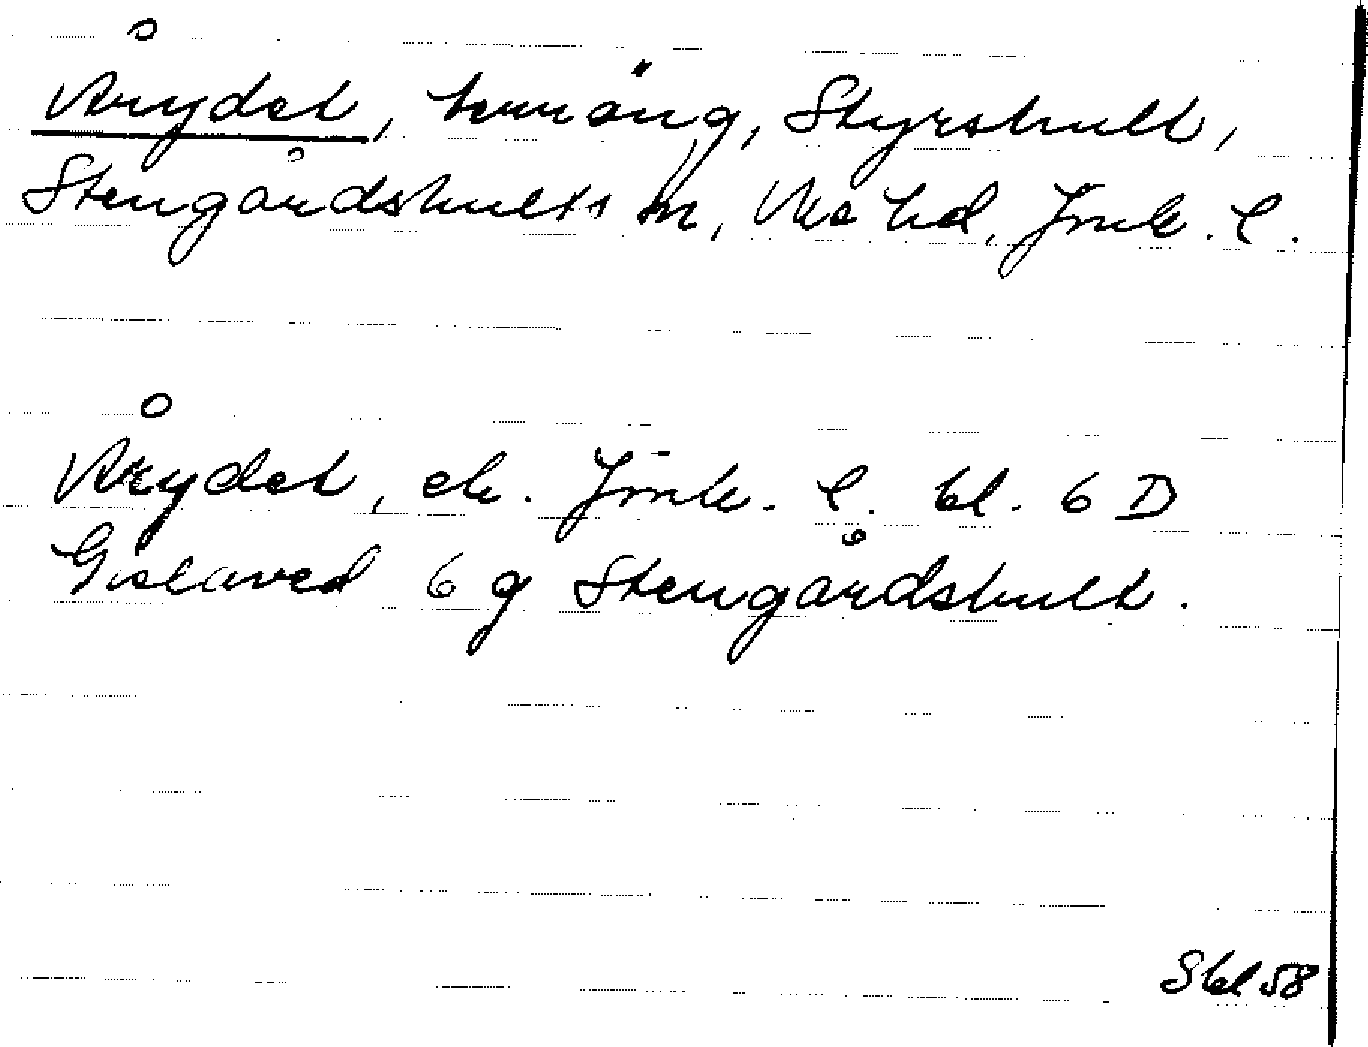 Årydet, terräng, Styrshult,
Stengårdshults sn, Mo hd, Jönk. l.
Årydet, ek. Jönk. l. bl. 6 D
Gislaved 6 g Stengårdshult.
Sbl 58